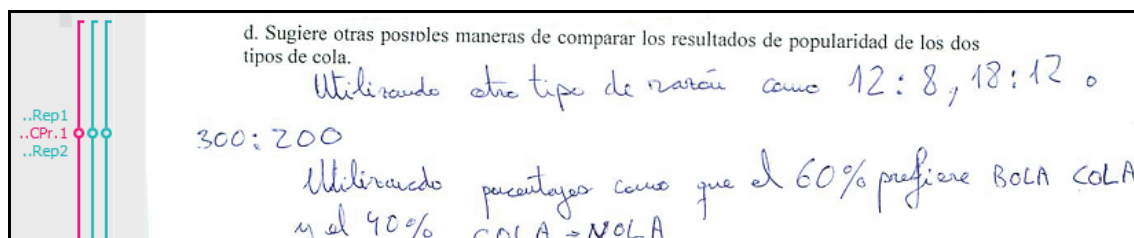 d. Sugiere otras posibles maneras de comparar los resultados de popularidad de los dos
tipos de cola.
Utilizando otro tipo de razón como 12:8, 18:12 o
..Rep1
..CPr.1
..Rep2
300:200
Utilizando porcentajes como que el 60% prefiere BOLA COLA
y el 40% COLA-NOLA